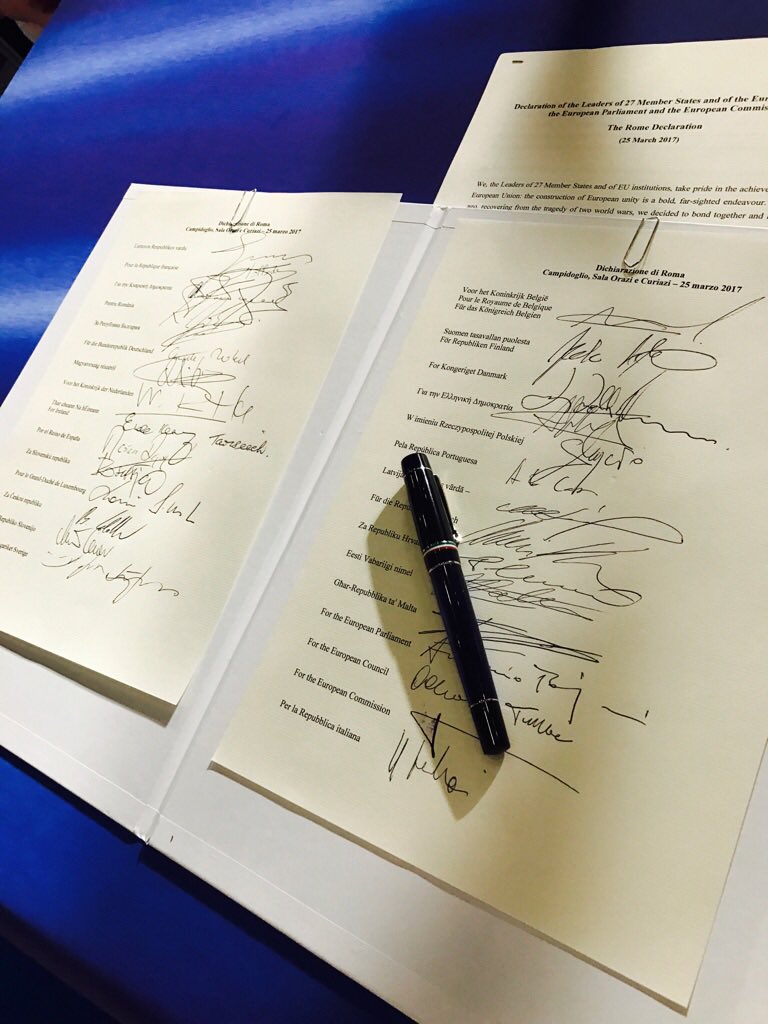 Declaration of the Leaders of 27 Member States and of the
the European Parliament and the European
The Rome Declaration
(25 March 2017)
We, the Leaders of 27 Member States and of EU institutions, take pride in the
European Union: the construction of European unity is a bold, far-sighted endeavour.
recovering from the tragedy of two world wars, we decided to bond together and
Dichiarazione di Roma
Campidoglio, Sala Orazi e Curiazi – 25 marzo 2017
Lietuvos Respublikos vardu
Pour la République française
Για την Κυπριακή Δημοκρατία
Pentru România
За Република България
Für die Bundesrepublik Deutschland
Magyarország részéről
Voor het Koninkrijk der Nederlanden
Thar ceann Na hÉireann
For Ireland
Por el Reino de España
Za Slovenskú republiku
Pour le Grand-Duché de Luxembourg
Za Českou republiku
Republiko Slovenijo
Sverige
Dichiarazione di Roma
Campidoglio, Sala Orazi e Curiazi – 25 marzo 2017
Voor het Koninkrijk België
Pour le Royaume de Belgique
Für das Königreich Belgien
Suomen tasavallan puolesta
För Republiken Finland
For Kongeriget Danmark
Για την Ελληνική Δημοκρατία
W imieniu Rzeczypospolitej Polskiej
Pela República Portuguesa
vārdā –
Für die
Za Republiku
Eesti Vabariigi nimel
Għar-Repubblika ta' Malta
For the European Parliament
For the European Council
For the European Commission
Per la Repubblica italiana